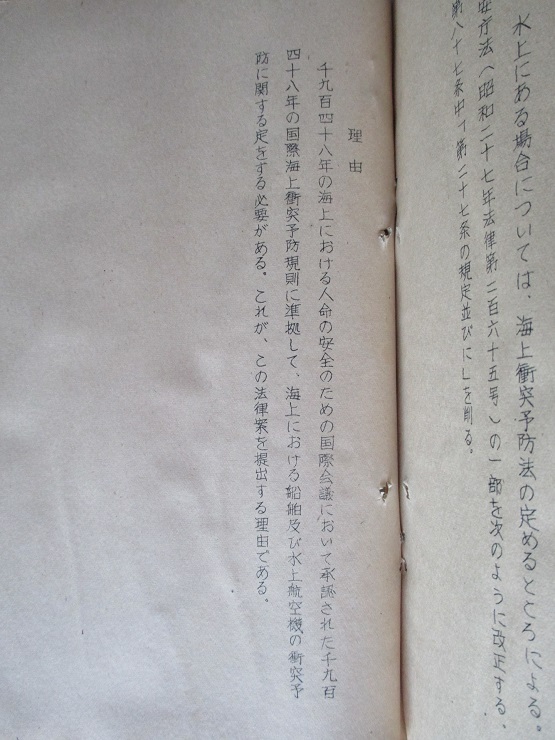 水上にある場合については、海上衝突予防法の定めるところによる。
安庁法（昭和二十七年法律第二百六十五号）の一部を次のように改正する。
第八十七条中「第二十七条の規定並びに」を削る。
理由
千九百四十八年の海上における人命の安全のための国際会議において承認された千九百
四十八年の国際海上衝突予防規則に準拠して、海上における船舶及び水上航空機の衝突予
防に関する定をする必要がある。これが、この法律案を提出する理由である。